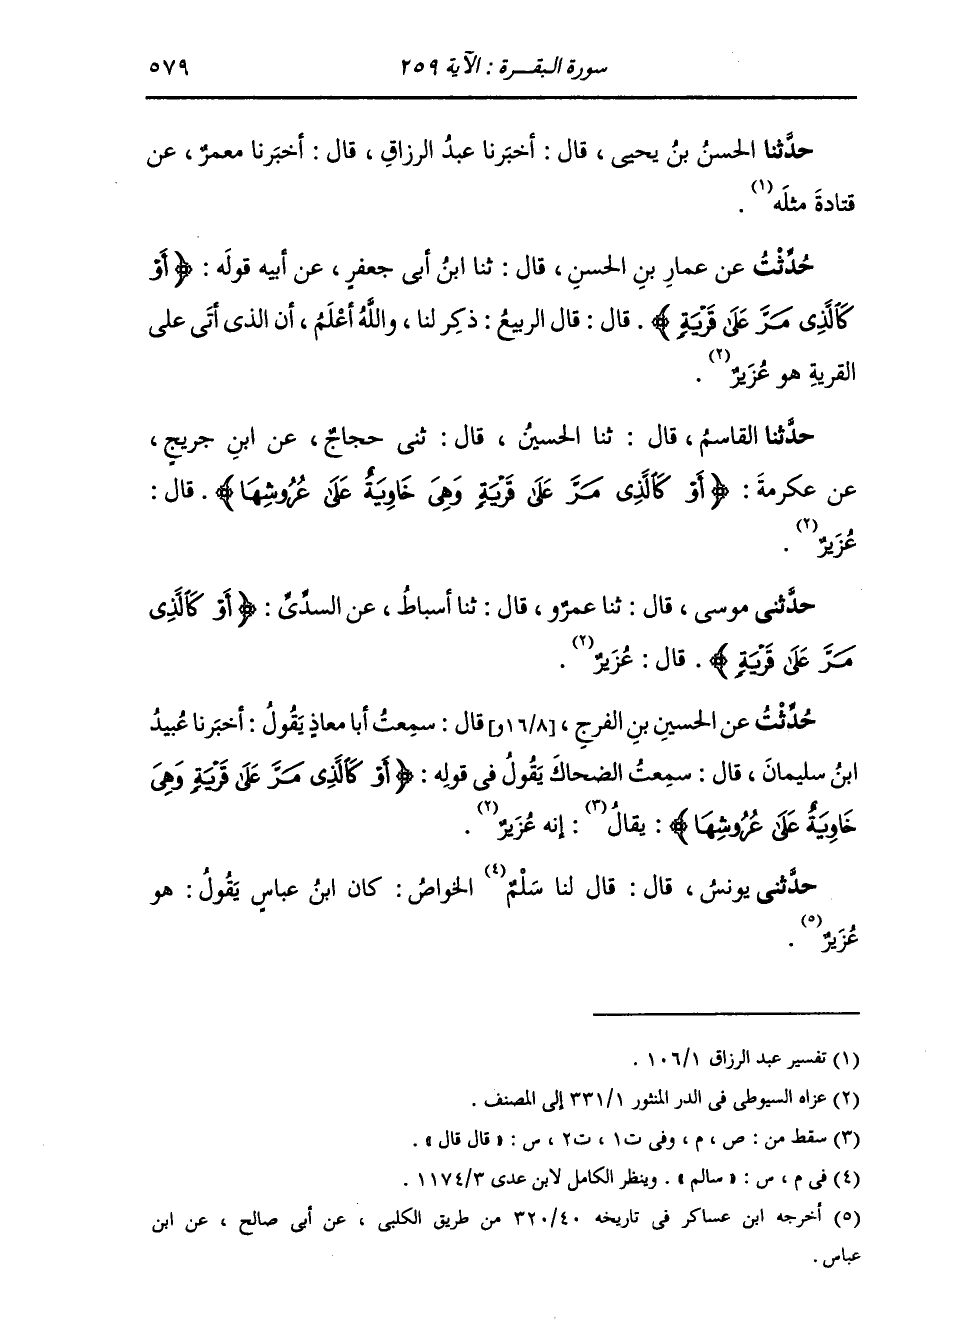 سورة البقـــرة : الآية ٢٥٩
٥٧٩
حدَّثنا الحسنُ بنُ يحيى ، قال : أخبَرنا عبدُ الرزاقِ ، قال : أخبَرنا معمرٌ ، عن
قتادةَ مثلَه(١) .
حُدِّثْتُ عن عمارِ بنِ الحسنِ ، قال : ثنا ابنُ أبى جعفرٍ ، عن أبيه قولَه : ﴿ أَوْ
كَالَّذِى مَرَّ عَلَىٰ قَرْيَةٍ ﴾ . قال : قال الربيعُ : ذكِر لنا ، واللَّهُ أعْلَمُ ، أن الذى أتَى على
القريةِ هو عُزَيرٌ(٢) .
حدَّثنا القاسمُ ، قال : ثنا الحسينُ ، قال : ثنى حجاجٌ ، عن ابنِ جريجٍ ،
عن عكرمةَ : ﴿ أَوْ كَالَّذِى مَرَّ عَلَىٰ قَرْيَةٍ وَهِىَ خَاوِيَةٌ عَلَىٰ عُرُوشِهَا ﴾ . قال :
عُزَيرٌ(٢) .
حدَّثنى موسى ، قال : ثنا عمرٌو ، قال : ثنا أسباطُ ، عن السدِّىِّ : ﴿ أَوْ كَالَّذِى
مَرَّ عَلَىٰ قَرْيَةٍ ﴾ . قال : عُزَيرٌ(٢) .
حُدِّثْتُ عن الحسينِ بنِ الفرجِ ، [١٦/٨و] قال : سمِعتُ أبا معاذٍ يَقُولُ : أخبَرنا عُبيدُ
ابنُ سليمانَ ، قال : سمِعتُ الضحاكَ يَقُولُ فى قولِه : ﴿ أَوْ كَالَّذِى مَرَّ عَلَىٰ قَرْيَةٍ وَهِىَ
خَاوِيَةٌ عَلَىٰ عُرُوشِهَا ﴾ : يقالُ(٣) : إنه عُزَيرٌ(٢) .
حدَّثنى يونسُ ، قال : قال لنا سَلْمٌ(٤) الخواصُ : كان ابنُ عباسٍ يَقُولُ : هو
عُزَيرٌ(٥) .
(١) تفسير عبد الرزاق ١٠٦/١ .
(٢) عزاه السيوطى فى الدر المنثور ٣٣١/١ إلى المصنف .
(٣) سقط من : ص ، م ، وفى ت١ ، ت٢ ، س : « قال قال » .
(٤) فى م ، س : « سالم » . وينظر الكامل لابن عدى ١١٧٤/٣ .
(٥) أخرجه ابن عساكر فى تاريخه ٣٢٠/٤٠ من طريق الكلبى ، عن أبى صالح ، عن ابن
عباس .